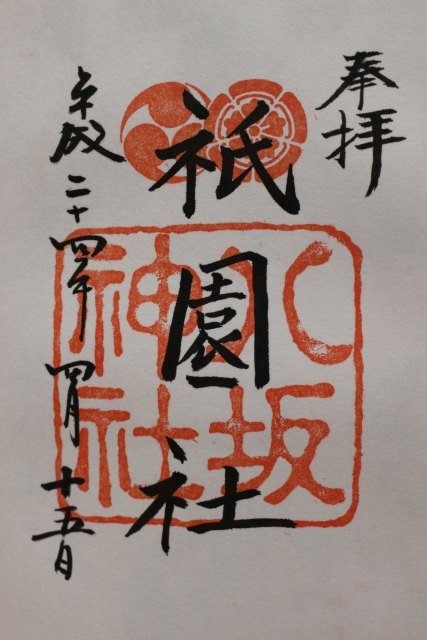 奉拝
祇園社
八坂神社
平成二十四年四月十五日